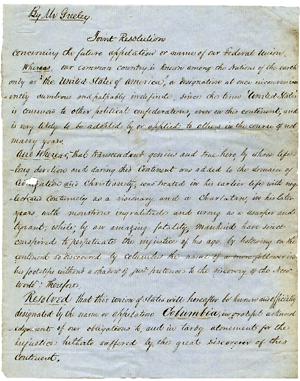 By Mr Greeley
Joint Resolution
concerning the future appellation or name of our Federal Union.
Whereas, our common country is known among the Nations of the earth
only as "the United States of America," a designation at once inconveni-
ently cumbrous and palpably indefinite, since the term 'United States'
is common to other political confederations, even on this continent, and
is very likely to be adopted by or applied to others in the course of not
many years,
And Whereas, that transcendent genius and true hero by whose life-
long devotion and daring this Continent was added to the domain of
Civilization and Christianity, was treated in his earlier life with
contumely as a visionary and a Charlatan, in his later
years with monstrous ingratitude and wrong as a usurper and
tyrant; while, by an amazing fatality, Mankind have since
conspired to perpetuate the injustice of his age, by bestowing on the
continent discovered by Columbus the name of a mere follower in
his footsteps without a shadow of just pretence to the discovery of the New
World: therefore,
Resolved that this Union of States will hereafter be known and
designated by the name or appellation Columbia, in grateful acknowl-
edgment of our obligations to, and in tardy atonement for the
injustice hitherto suffered by this great discoverer of this
Continent.